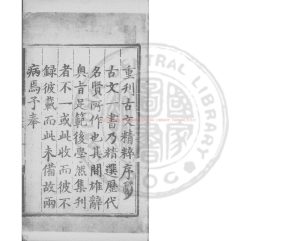 重刊古文精粹序
古文一書乃精選歷代
名賢所作也其間雄辭
奥旨足範後學然集刊
者不一或此收而彼不
錄彼載而此未備故兩
病焉予奉